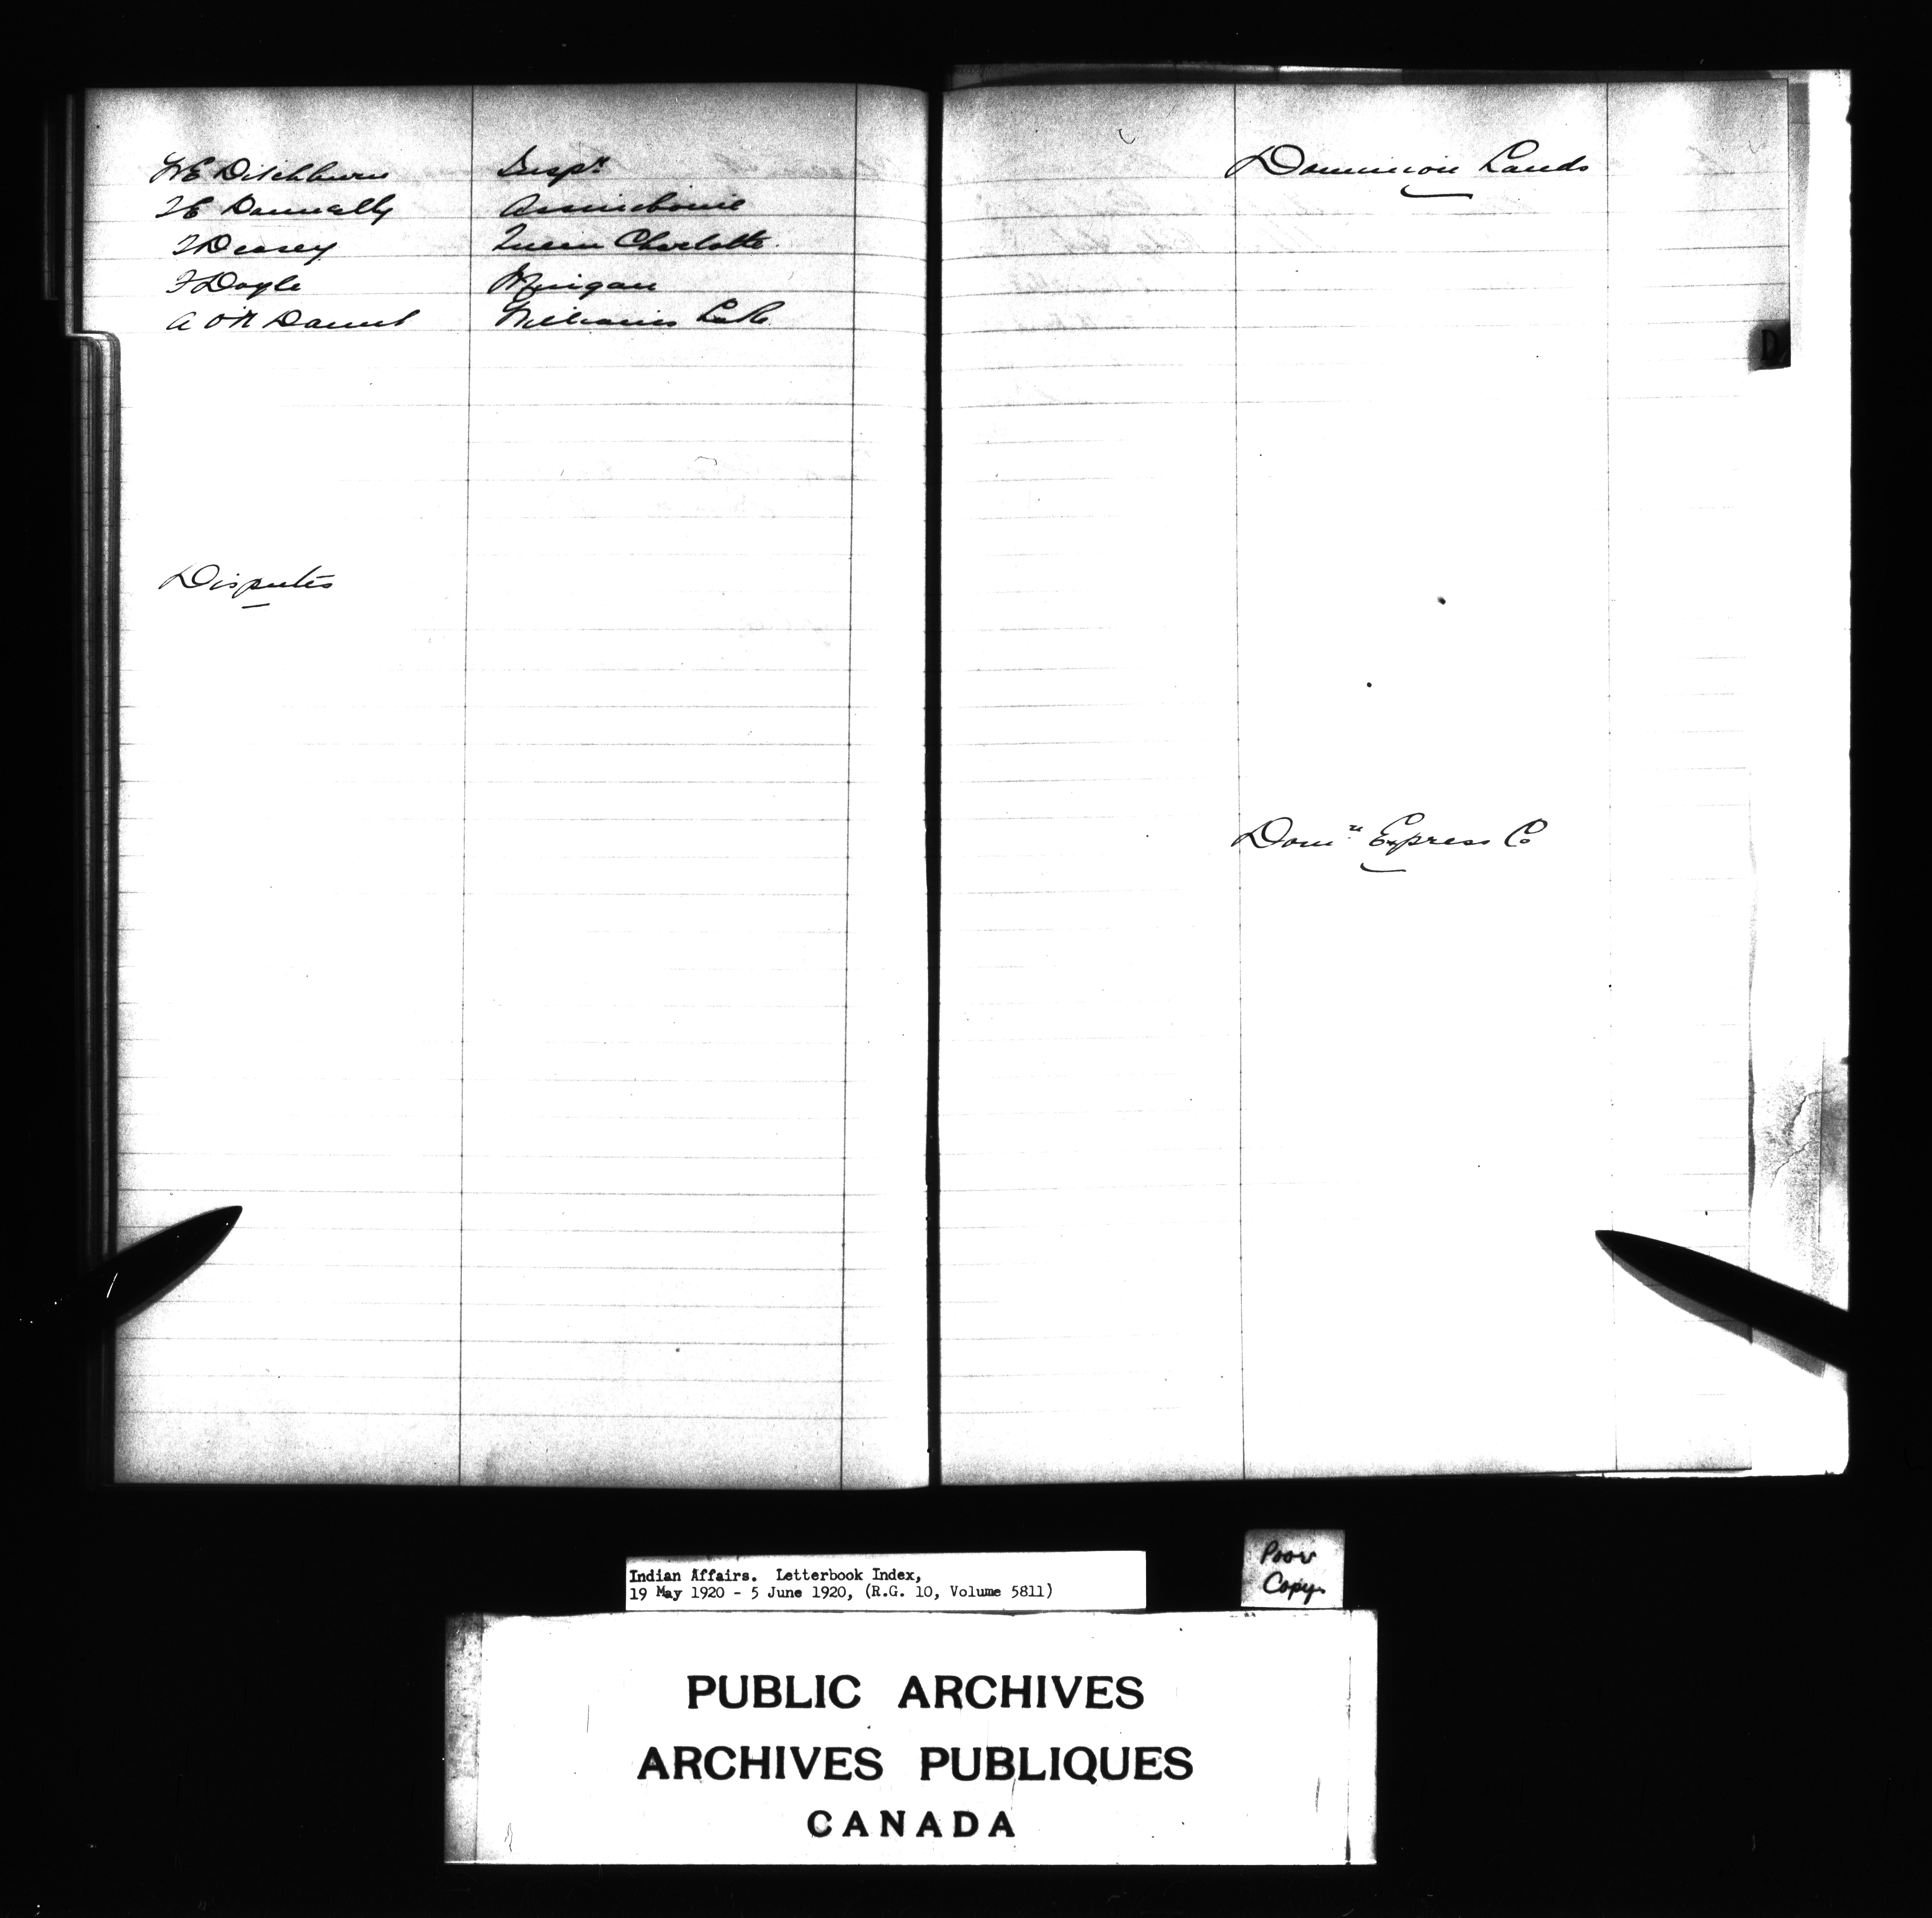 W E Ditchburn Insp^r
T E Donnelly Assiniboine
T Deasey Queen Charlotte
F Doyle
A O'N Daunt Williams Lake
Disputes
Dominion Lands
D
Dom^n Express Co
Indian Affairs. Letterbook Index,
19 May 1920 - 5 June 1920, (R.G. 10, Volume 5811)
Poor
Copy.
PUBLIC ARCHIVES
ARCHIVES PUBLIQUES
CANADA